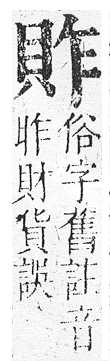 俗字舊註音
昨財貨誤